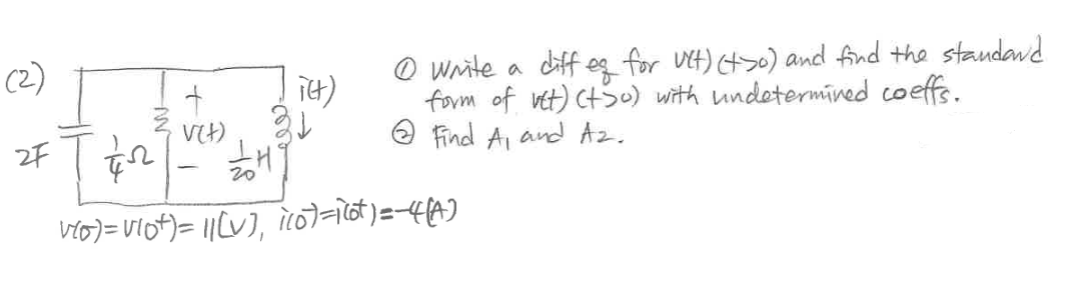 (2)
① Write a diff eq for v(t) (t>0) and find the standard
form of v(t) (t>0) with undetermined coeffs.
② Find A₁ and A₂.
2F
1/4 Ω
+
v(t)
−
1/20 H
i(t)
↓
v(0⁻)=v(0⁺)= 11[V], i(0⁻)=i(0⁺)=-4[A]